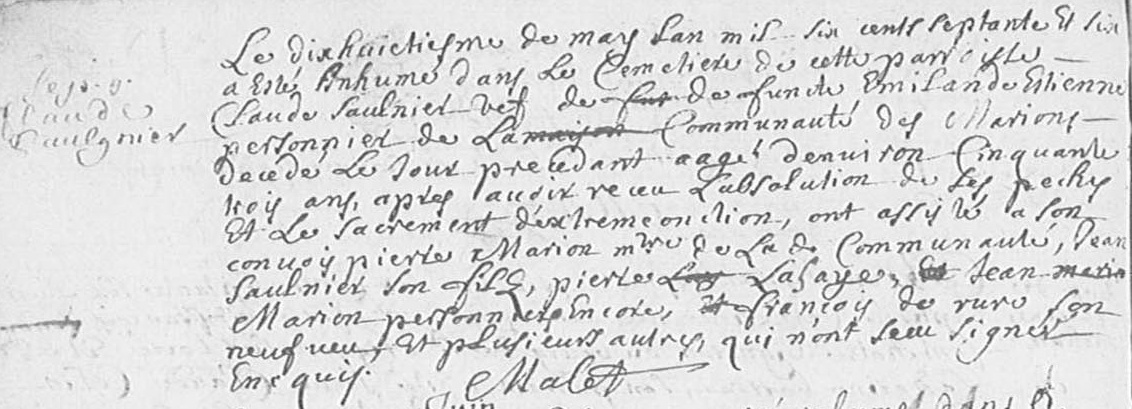 Claude
Saulgnier
Le dixhuictiesme de may Lan mil six cents septante Et six
a Esté Inhumé dans Le Cemetiere de cette parroisse
Claude Saulnier vef de de functe Emilande Estienne
personnier de La maison Communauté des Marions
decedé Le Jour precedant aagé denuiron Cinquante
trois ans, apres auoir receu Labsolution de ses pechés
Et Le sacrement dextremeonction, ont assisté a son
conuoy pierre Marion mre de La de Communauté, Jean
Saulnier son filz, pierre Lasaye, Jean marion
Marion personnier Encore, Et françoy de rure son
neufueu, Et plusieurs autres, qui n'ont sceu signer
Enxquis. Malet
Juin